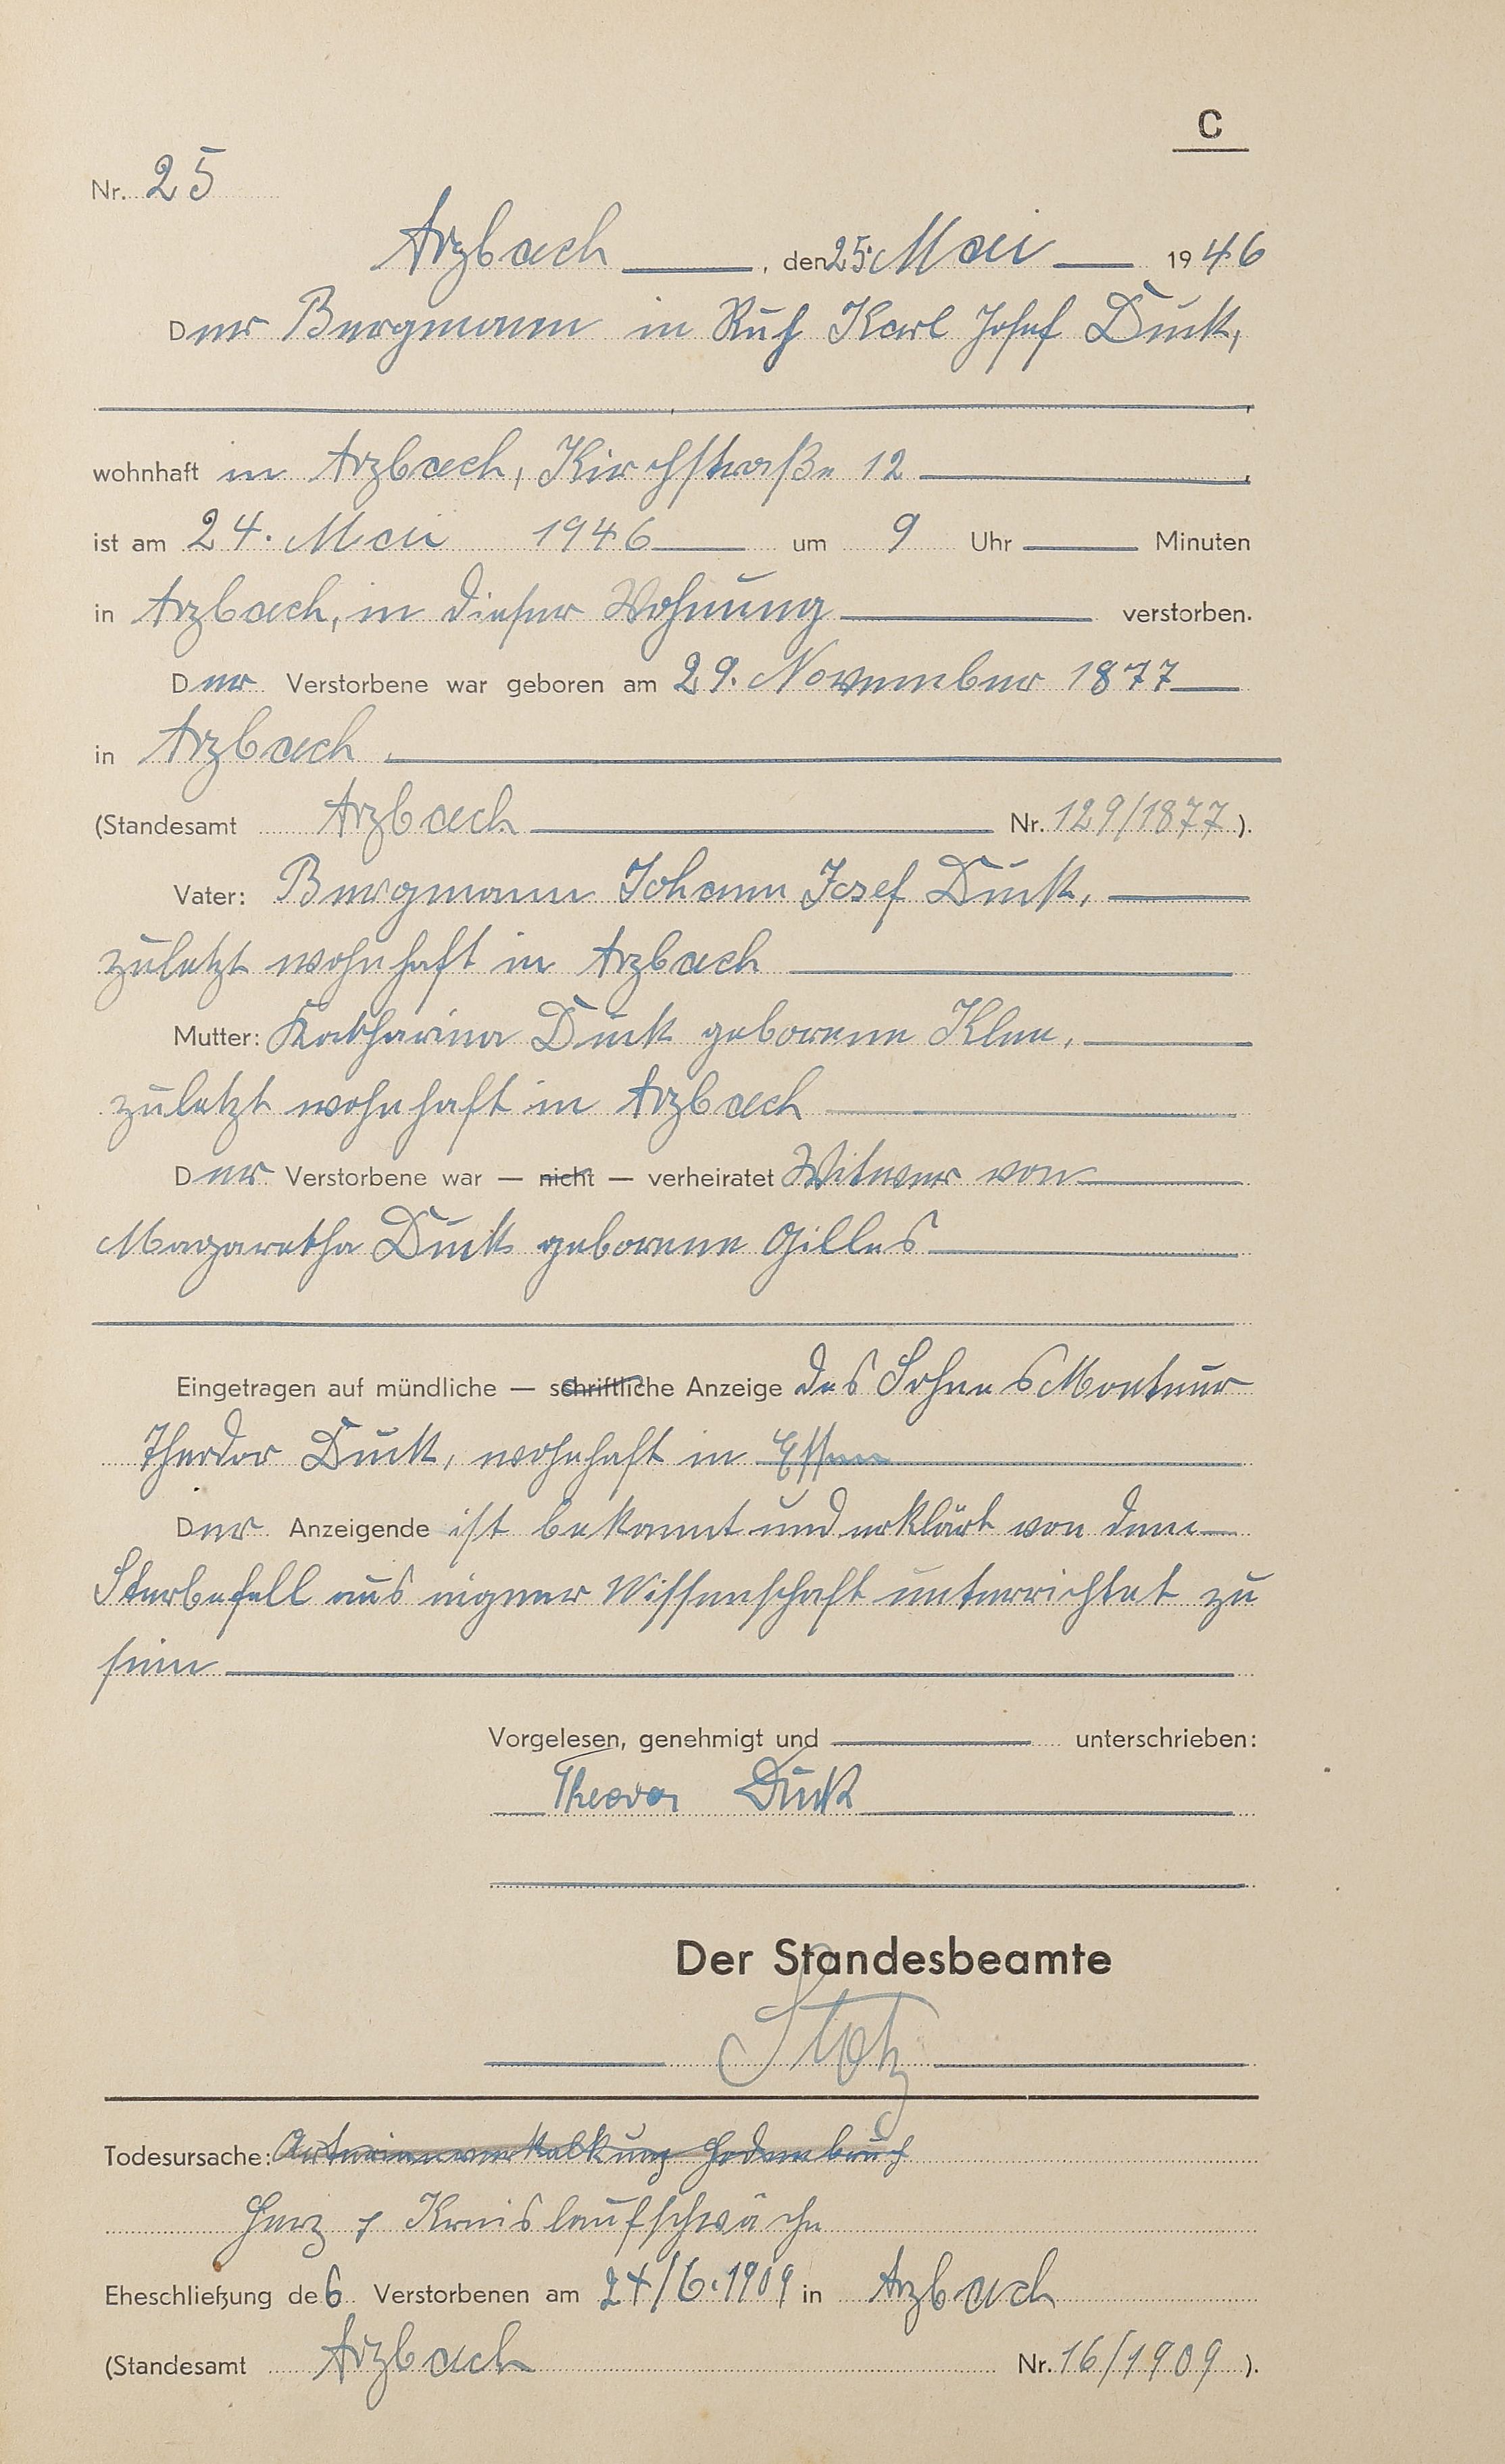 C
Nr. 25
Arzbach, den 25. Mai 1946
Der Bergmann in Ruh Karl Josef Duck,
wohnhaft in Arzbach, Kirchstraße 12
ist am 24. Mai 1946 um 9 Uhr Minuten
in Arzbach, in dieser Wohnung verstorben.
Der Verstorbene war geboren am 29. November 1877
in Arzbach
(Standesamt Arzbach Nr. 129/1877).
Vater: Bergmann Johann Josef Duck,
zuletzt wohnhaft in Arzbach
Mutter: Katharina Duck geborene Klee,
zuletzt wohnhaft in Arzbach
Der Verstorbene war — nicht — verheiratet Witwer von
Magaretha Duck geborene Gilles
Eingetragen auf mündliche — schriftliche Anzeige des Sohnes Monteur
Theodor Duck, wohnhaft in Essen
Der Anzeigende ist bekannt und erklärt von dem
Sterbefall aus eigner Wissenschaft unterrichtet zu
sein
Vorgelesen, genehmigt und unterschrieben:
Theodor Duck
Der Standesbeamte
Todesursache: Arterienverkalkung Hodenbruch
Herz & Kreislaufschwäche
Eheschließung des Verstorbenen am 24/6.1909 in Arzbach
(Standesamt Arzbach Nr. 16/1909).